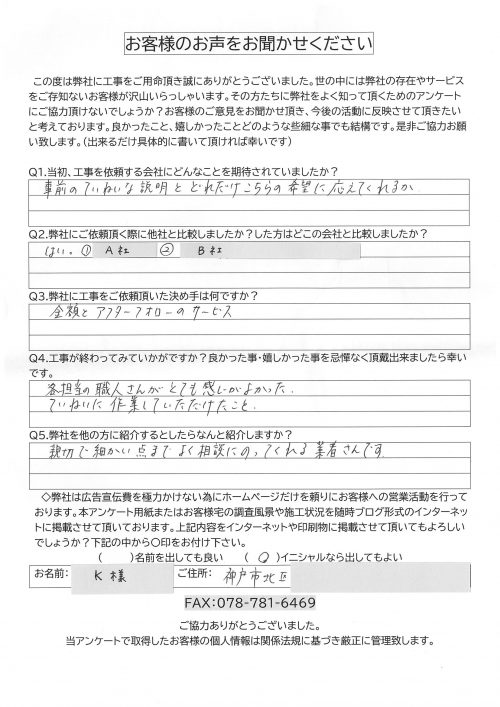 お客様のお声をお聞かせください
この度は弊社に工事をご用命頂き誠にありがとうございました。世の中には弊社の存在やサービス
をご存知ないお客様が沢山いらっしゃいます。その方たちに弊社をよく知って頂くためのアンケート
にご協力頂けないでしょうか？お客様のご意見をお聞かせ頂き、今後の活動に反映させて頂きたい
と考えております。良かったこと、嬉しかったことどのような些細な事でも結構です。是非ご協力お願
い致します。（出来るだけ具体的に書いて頂ければ幸いです）
Q1.当初、工事を依頼する会社にどんなことを期待されていましたか？
事前のていねいな説明と どれだけこちらの希望に応えてくれるか
Q2.弊社にご依頼頂く際に他社と比較しましたか？した方はどこの会社と比較しましたか？
はい。① A社 ② B社
Q3.弊社に工事をご依頼頂いた決め手は何ですか？
金額とアフターフォローのサービス
Q4.工事が終わってみていかがですか？良かった事・嬉しかった事を忌憚なく頂戴出来ましたら幸い
です。
各担当の職人さんがとても感じがよかった.
ていねいに作業していただけたこと.
Q5.弊社を他の方に紹介するとしたらなんと紹介しますか？
親切で細かい点までよく相談にのってくれる業者さんです
◇弊社は広告宣伝費を極力かけない為にホームページだけを頼りにお客様への営業活動を行って
おります。本アンケート用紙またはお客様宅の調査風景や施工状況を随時ブログ形式のインターネッ
トに掲載させて頂いております。上記内容をインターネットや印刷物に掲載させて頂いてもよろしい
でしょうか？下記の中から〇印をお付け下さい。
（　　）名前を出しても良い　（ 〇 ）イニシャルなら出してもよい
お名前： K 様 ご住所： 神戸市北区
FAX:078-781-6469
ご協力ありがとうございました。
当アンケートで取得したお客様の個人情報は関係法規に基づき厳正に管理致します。